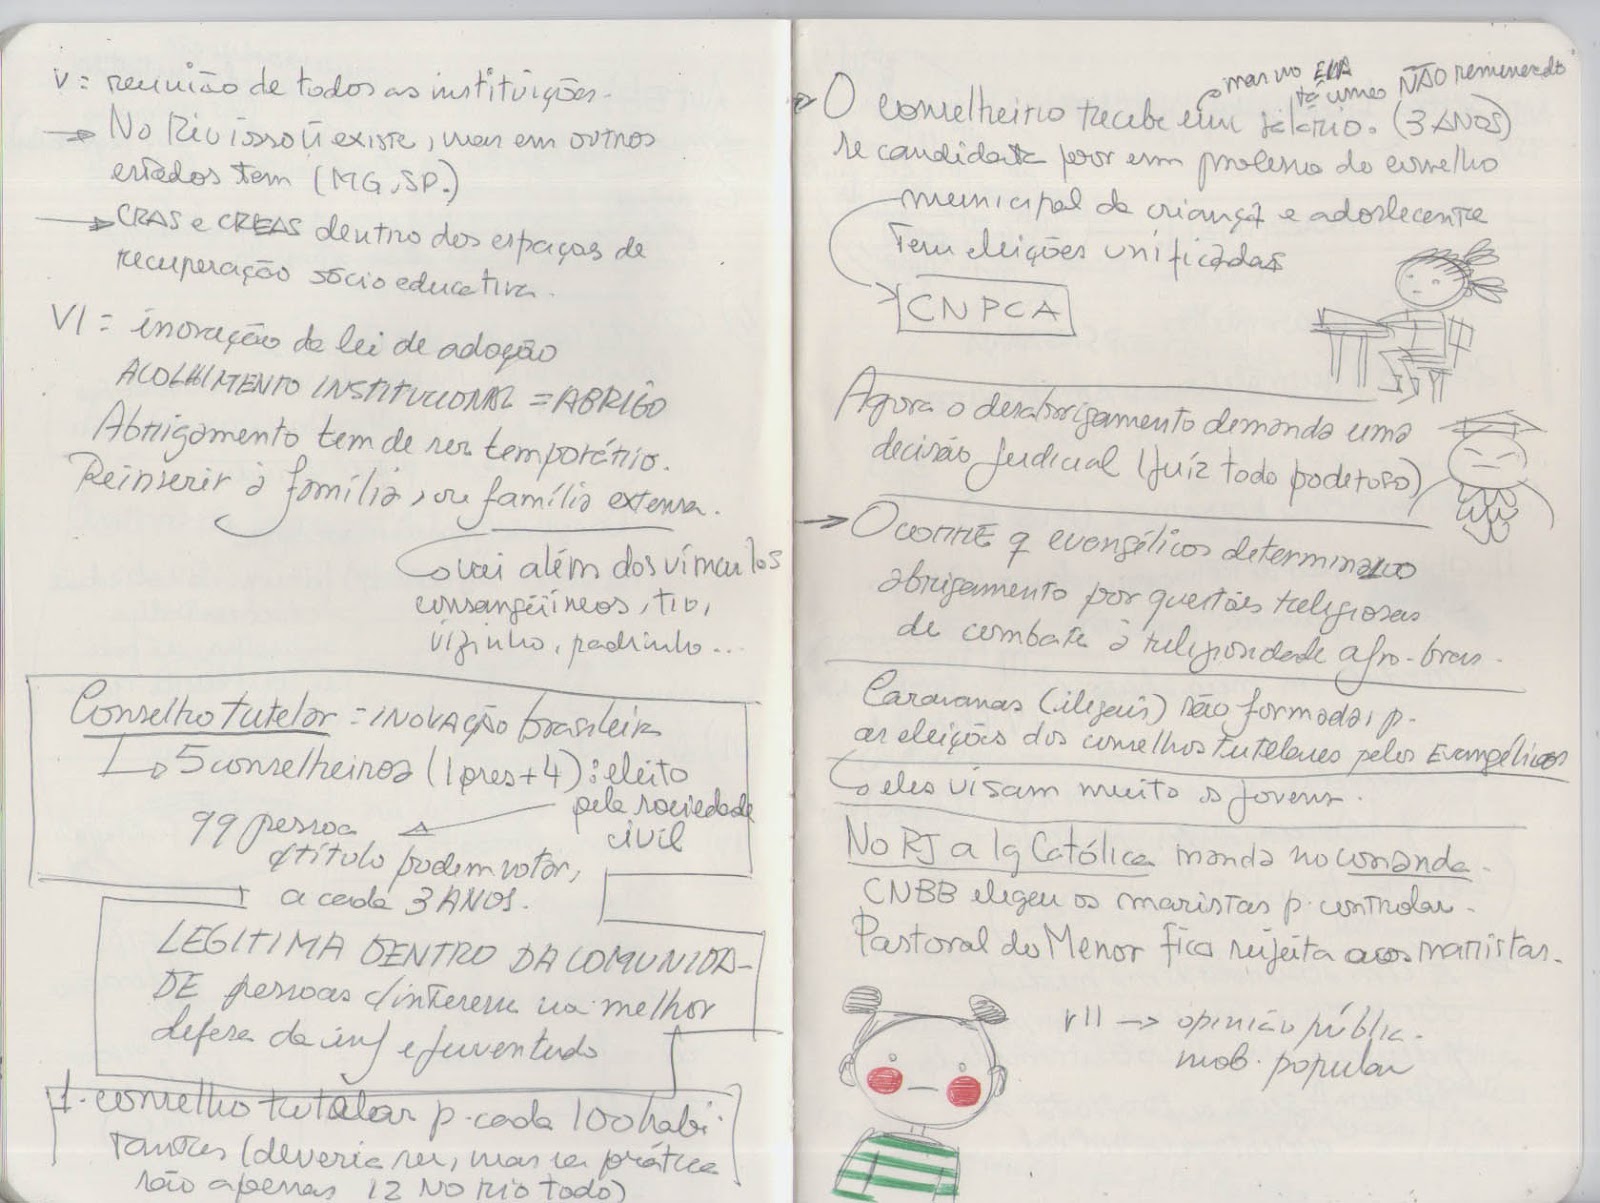 V = reunião de todos as instituições.
→ No Rio isso ñ existe, mas em outros
estados tem (MG, SP.)
→ CRAS e CREAS dentro dos espaços de
recuperação sócio educativa.
VI = inovação da lei de adoção
ACOLHIMENTO INSTITUCIONAL = ABRIGO
Abrigamento tem de ser temporário.
Reinserir à família, ou família extensa.
vai além dos vínculos
consangüíneos, tio,
vizinho, padrinho...
Conselho tutelar = INOVAÇÃO brasileira
5 conselheiros (1 pres + 4) : eleito
pela sociedade
civil
99 pessoa
c/título podem votar,
a cada 3 ANOS.
LEGITIMA DENTRO DA COMUNIDA-
DE pessoas c/interesse na melhor
defesa da inf e juventude
1 conselho tutelar p. cada 100 habi-
tantes (deveria ser, mas na prática
são apenas 12 NO RIO todo)
mas no EUA
tá como NÃO remunerado
O conselheiro recebe um salário. (3 ANOS)
se candidata por um processo do conselho
municipal da criança e adolecente
Tem eleições unificadas
CNPCA
Agora o desabrigamento demanda uma
decisão judicial (juiz todo poderoso)
→ OCORRE q evangélicos determinam
abrigamento por questões religiosas
de combate à religiosidade afro-bras.
Caravanas (ilegais) são formadas p.
as eleições dos conselhos tutelares pelos Evangélicos
eles visam muito os jovens.
No RJ a Ig Católica manda no comanda.
CNBB elegeu os maristas p. controlar.
Pastoral do Menor fica sujeita aos maristas.
VII → opinião pública.
mob. popular